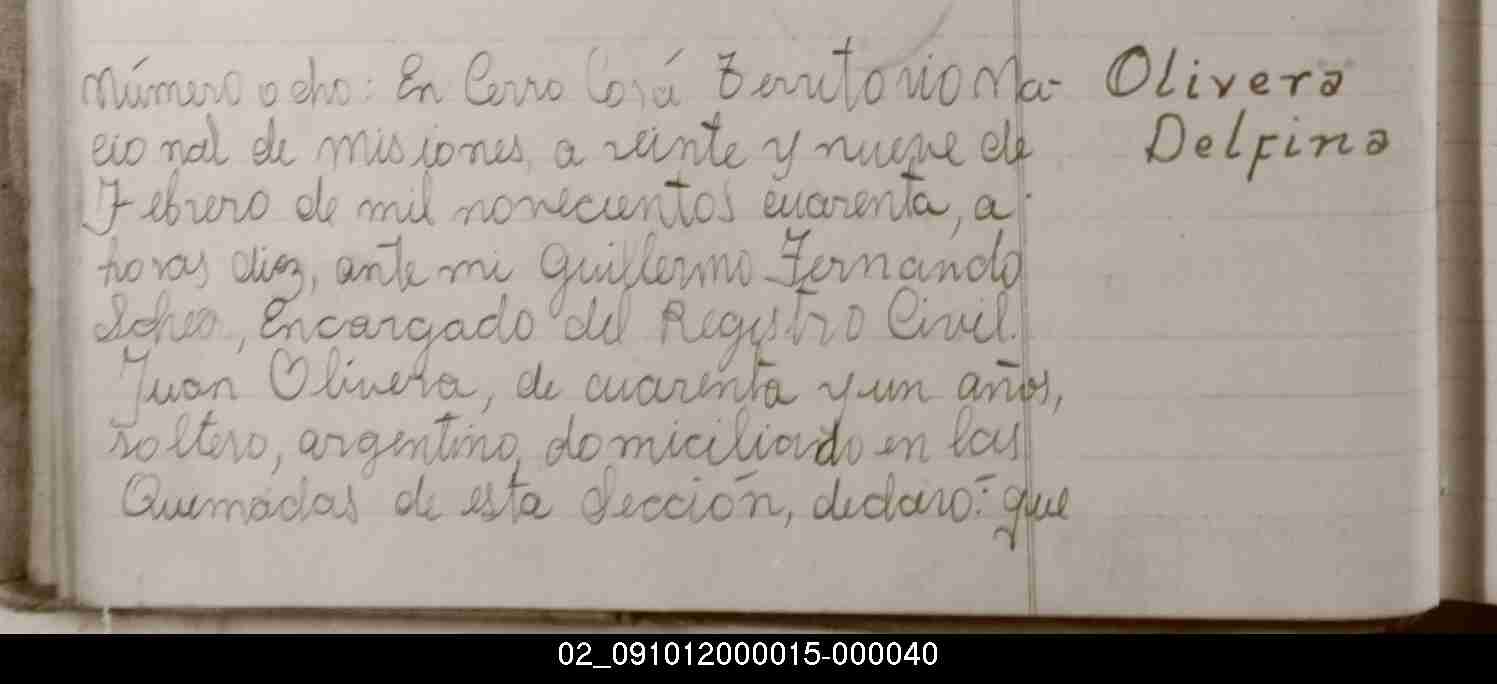 Número ocho: En Cerro Corá Territorio Na-
cional de misiones, a veinte y nueve de
Febrero de mil novecientos cuarenta, a
horas diez, ante mi Guillermo Fernando
Encargado del Registro Civil.
Juan Olivera, de cuarenta y un años,
soltero, argentino, domiciliado en las
Quemadas de esta Sección, declaro: que
Olivera
Delfina
02_091012000015-000040